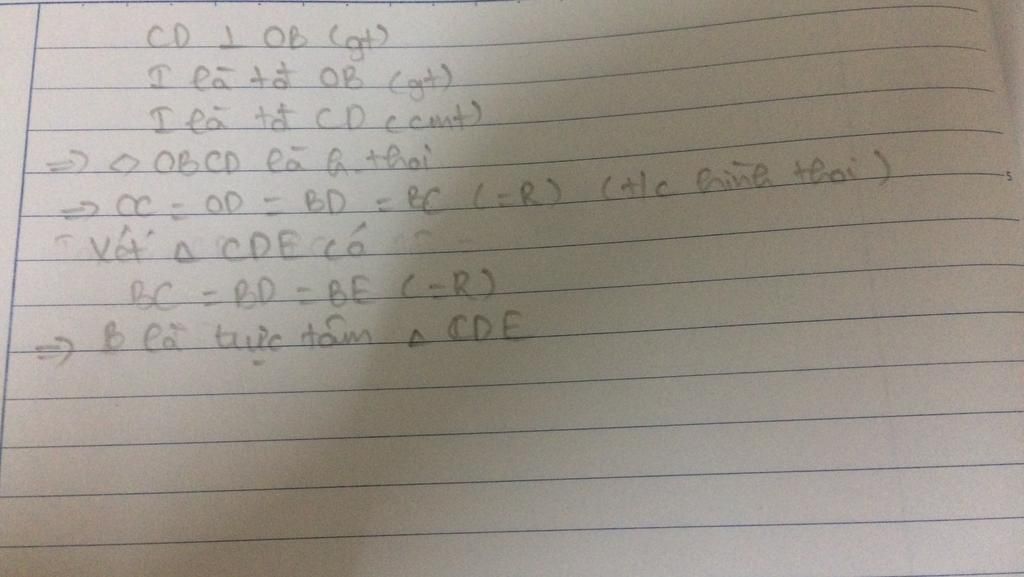 CD ⊥ OB (gt)
I là tđ OB (gt)
I là tđ CD (cmt)
=> ◇ OBCD là h. thoi
=> OC = OD = BD = BC (=R) (t/c hình thoi)
Xét △ CDE có
BC = BD = BE (=R)
=> B là trực tâm △ CDE